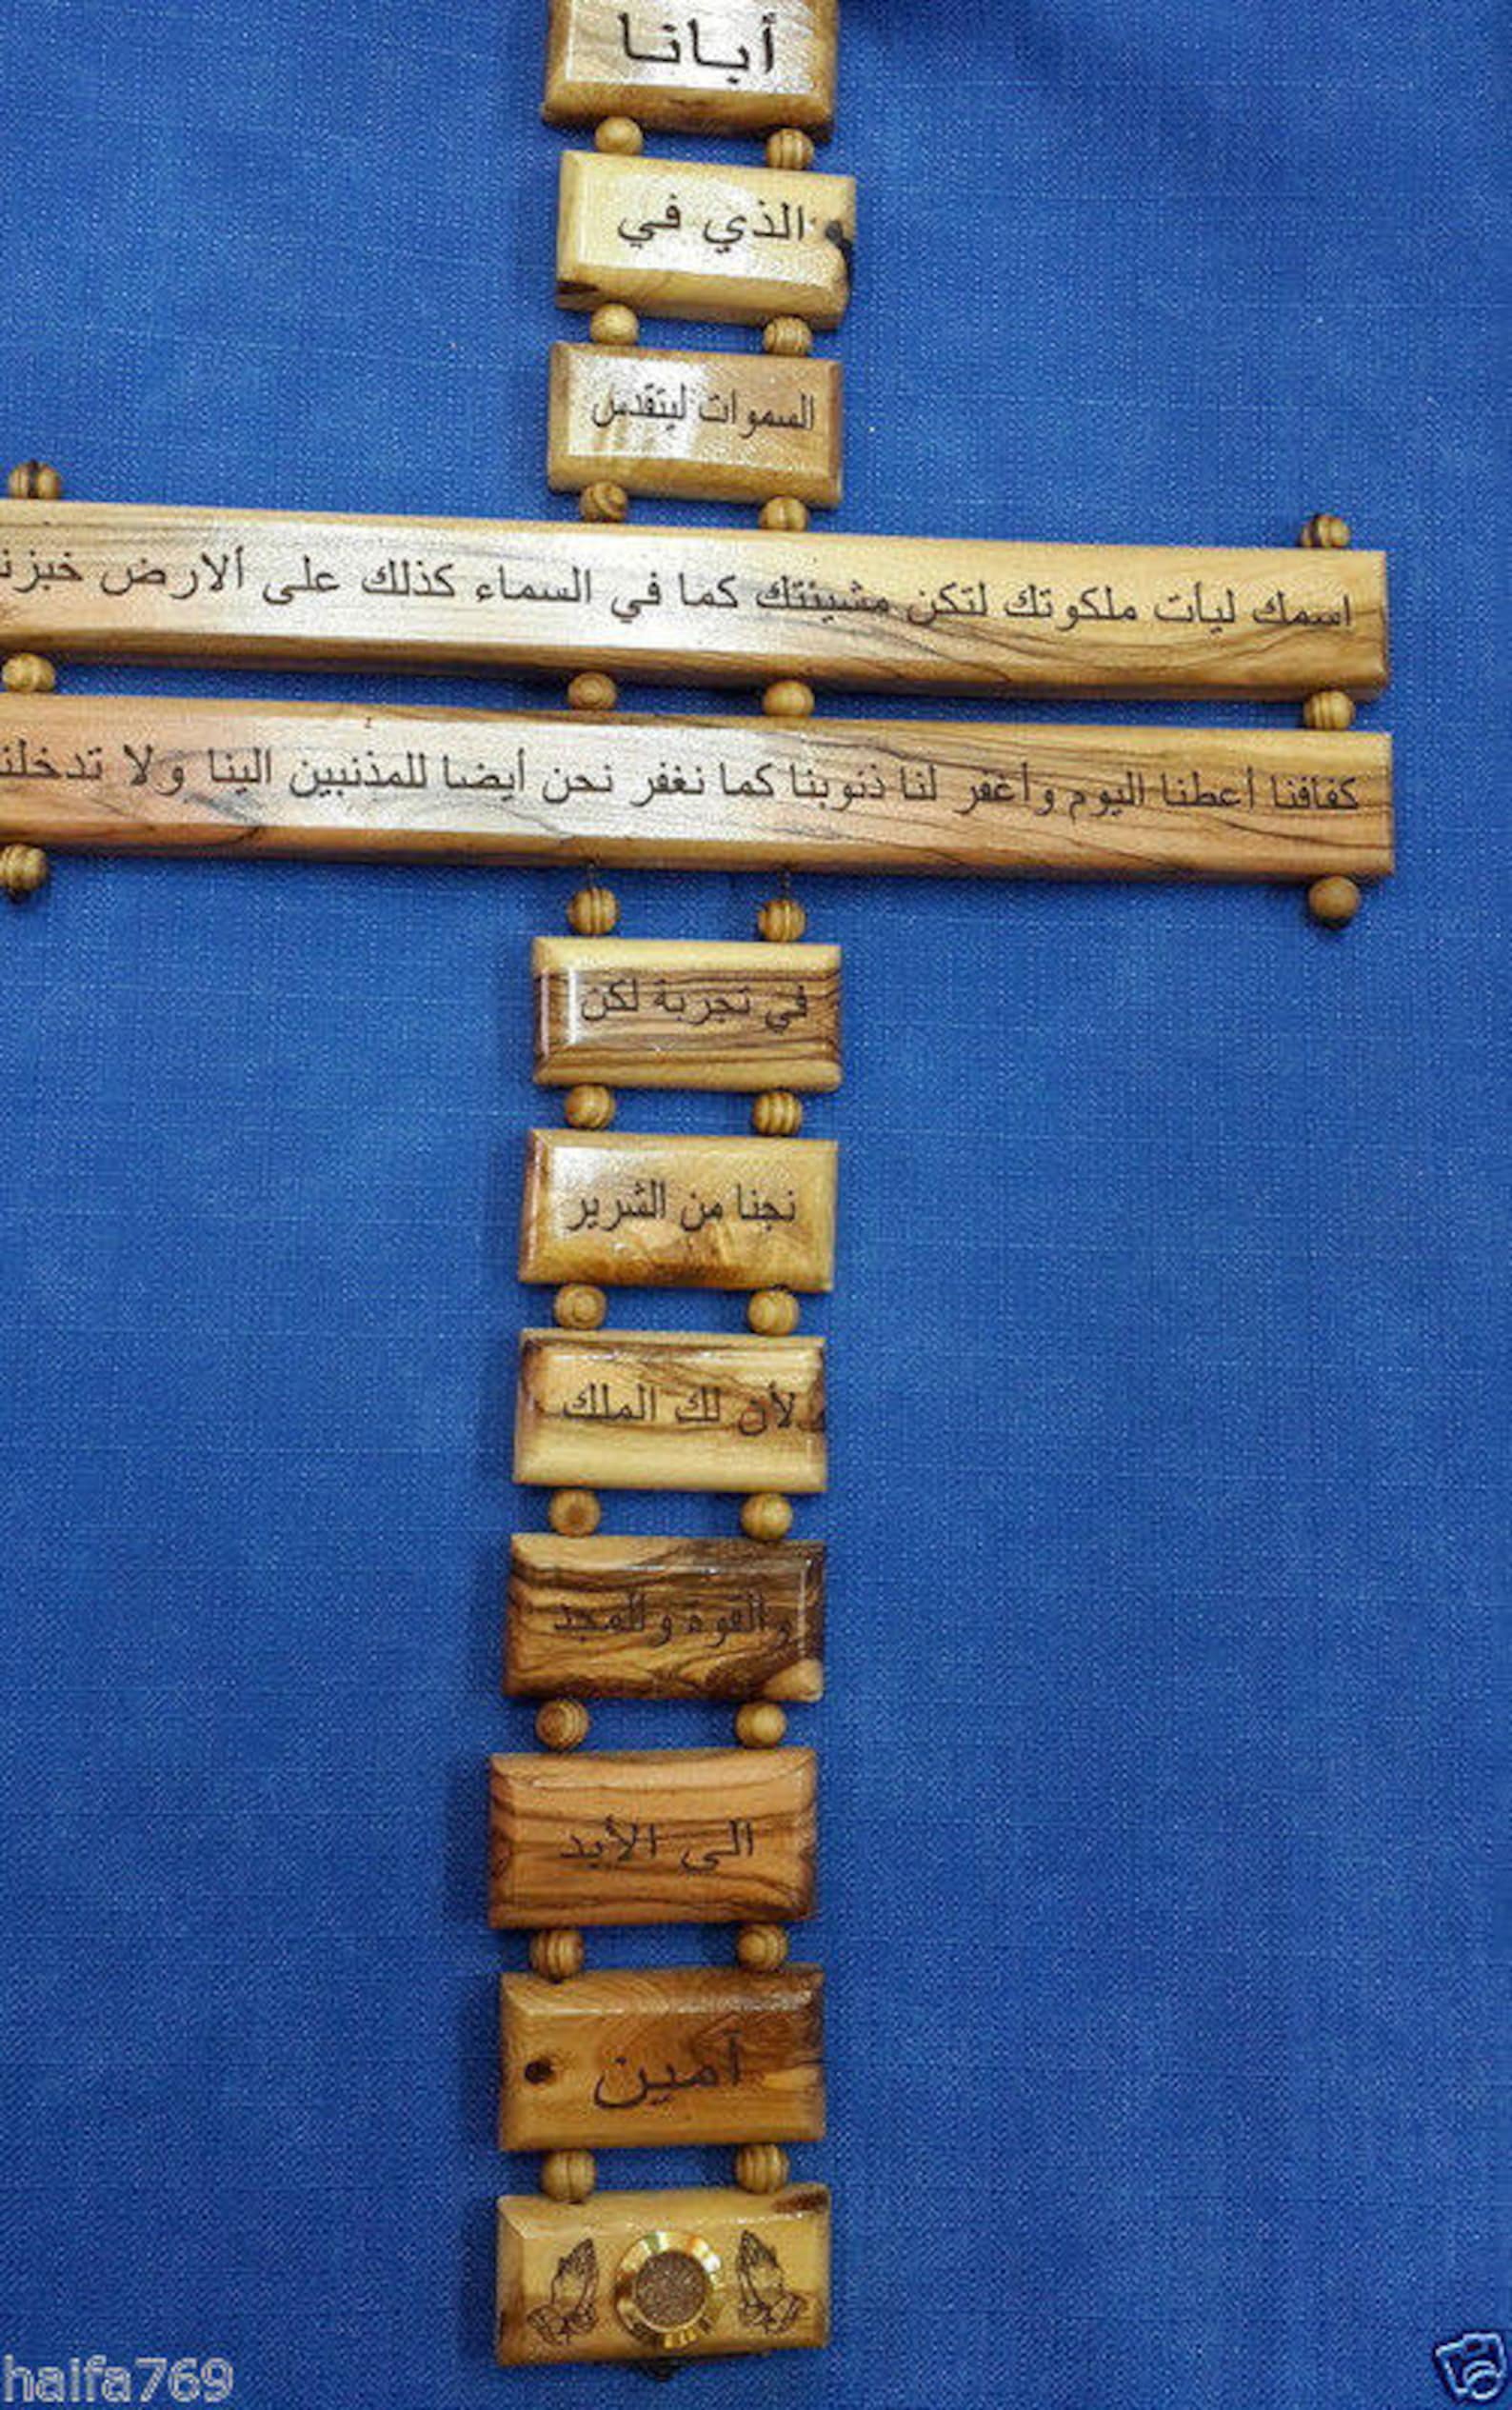 أبانا
الذي في
السموات ليتقدس
اسمك ليأت ملكوتك لتكن مشيئتك كما في السماء كذلك على ألارض خبزنا
كفافنا أعطنا اليوم وأغفر لنا ذنوبنا كما نغفر نحن أيضا للمذنبين الينا ولا تدخلنا
في تجربة لكن
نجنا من الشرير
لأن لك الملك
والقوة والمجد
الى الأبد
آمين
haifa769